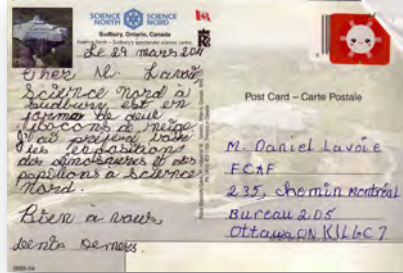 SCIENCE NORTH SCIENCE NORD
Sudbury, Ontario, Canada
Science North - Sudbury's spectacular science centre.
Le 29 mars 20
Cher M. Lavoie
Science nord à
Sudbury est en
forme de deux
flocons de neige.
J'ai préféré voir
les expositions
des dinosaures et des
papillons à Science
Nord.
Bien à vous,
Denis Demers.
Post Card – Carte Postale
M. Daniel Lavoie
FCAF
235, chemin Montréal
Bureau 205
Ottawa ON K1L6C7